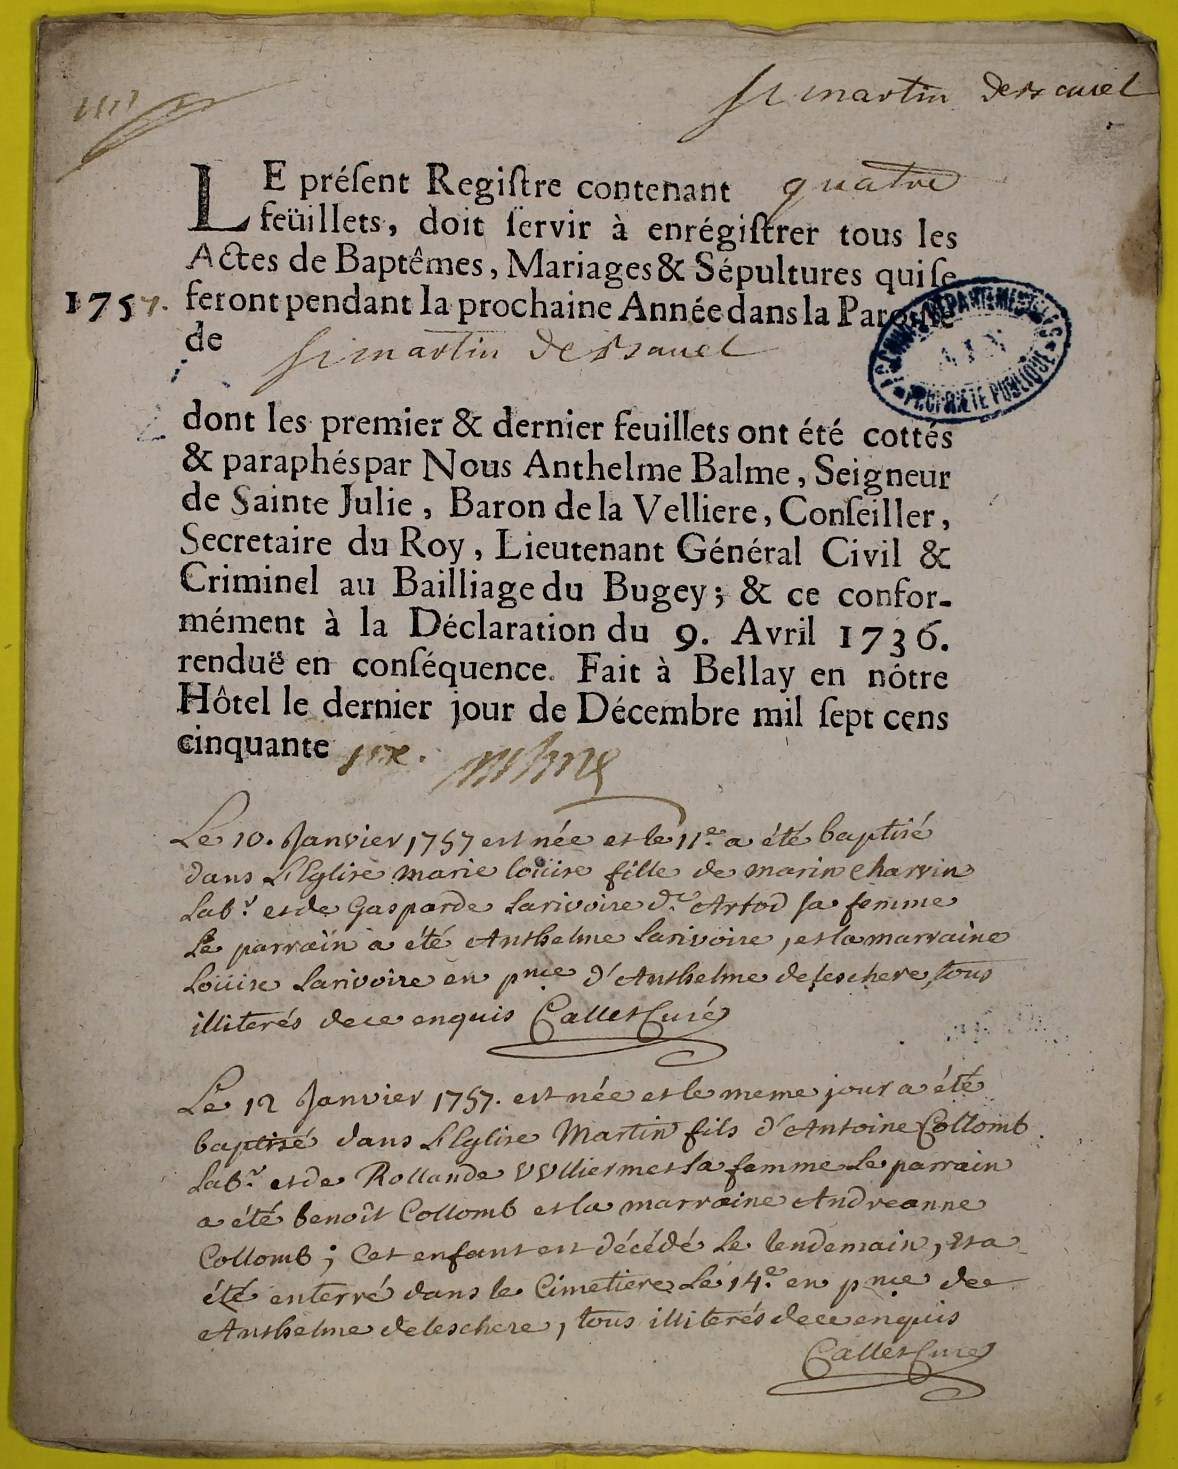 St martin de Bavel
LE préſent Regiſtre contenant quatre
feüillets, doit ſervir à enrégiſtrer tous les
Actes de Baptêmes, Mariages & Sépultures qui ſe
1757. feront pendant la prochaine Année dans la Paroiſſe
de St martin de Bavel
ARCHIVES DÉPARTEMENTALES
AIN
PROPRIÉTÉ PUBLIQUE
dont les premier & dernier feuillets ont été cottés
& paraphés par Nous Anthelme Balme, Seigneur
de Sainte Julie, Baron de la Velliere, Conſeiller,
Secretaire du Roy, Lieutenant Général Civil &
Criminel au Bailliage du Bugey; & ce confor-
mément à la Déclaration du 9. Avril 1736.
renduë en conſéquence. Fait à Bellay en nôtre
Hôtel le dernier jour de Décembre mil ſept cens
cinquante six.
Le 10. Janvier 1757 est née et le 11e. a été baptisé
dans L'Eglise marie loüise fille de marin Charvin
Labr. et de Gasparde Larivoire de. Artod sa femme
Le parrain a été Anthelme Larivoire, et la marraine
Loüise Larivoire en pnce d'Anthelme deleschere, tous
illiterés de ce enquis Callet Curé
Le 12 Janvier 1757. est née et le meme jour a été
baptisé dans L'Eglise Martin fils d'Antoine Collomb
Labr. et de Rollande Vulliermet sa femme Le parrain
a été benoît Collomb et la marraine Andreanne
Collomb; Cet enfant est décédé Le lendemain, et a
été enterré dans le Cimetiere Le 14e. en pnce de
Anthelme deleschere, tous illiterés de ce enquis
Callet Curé